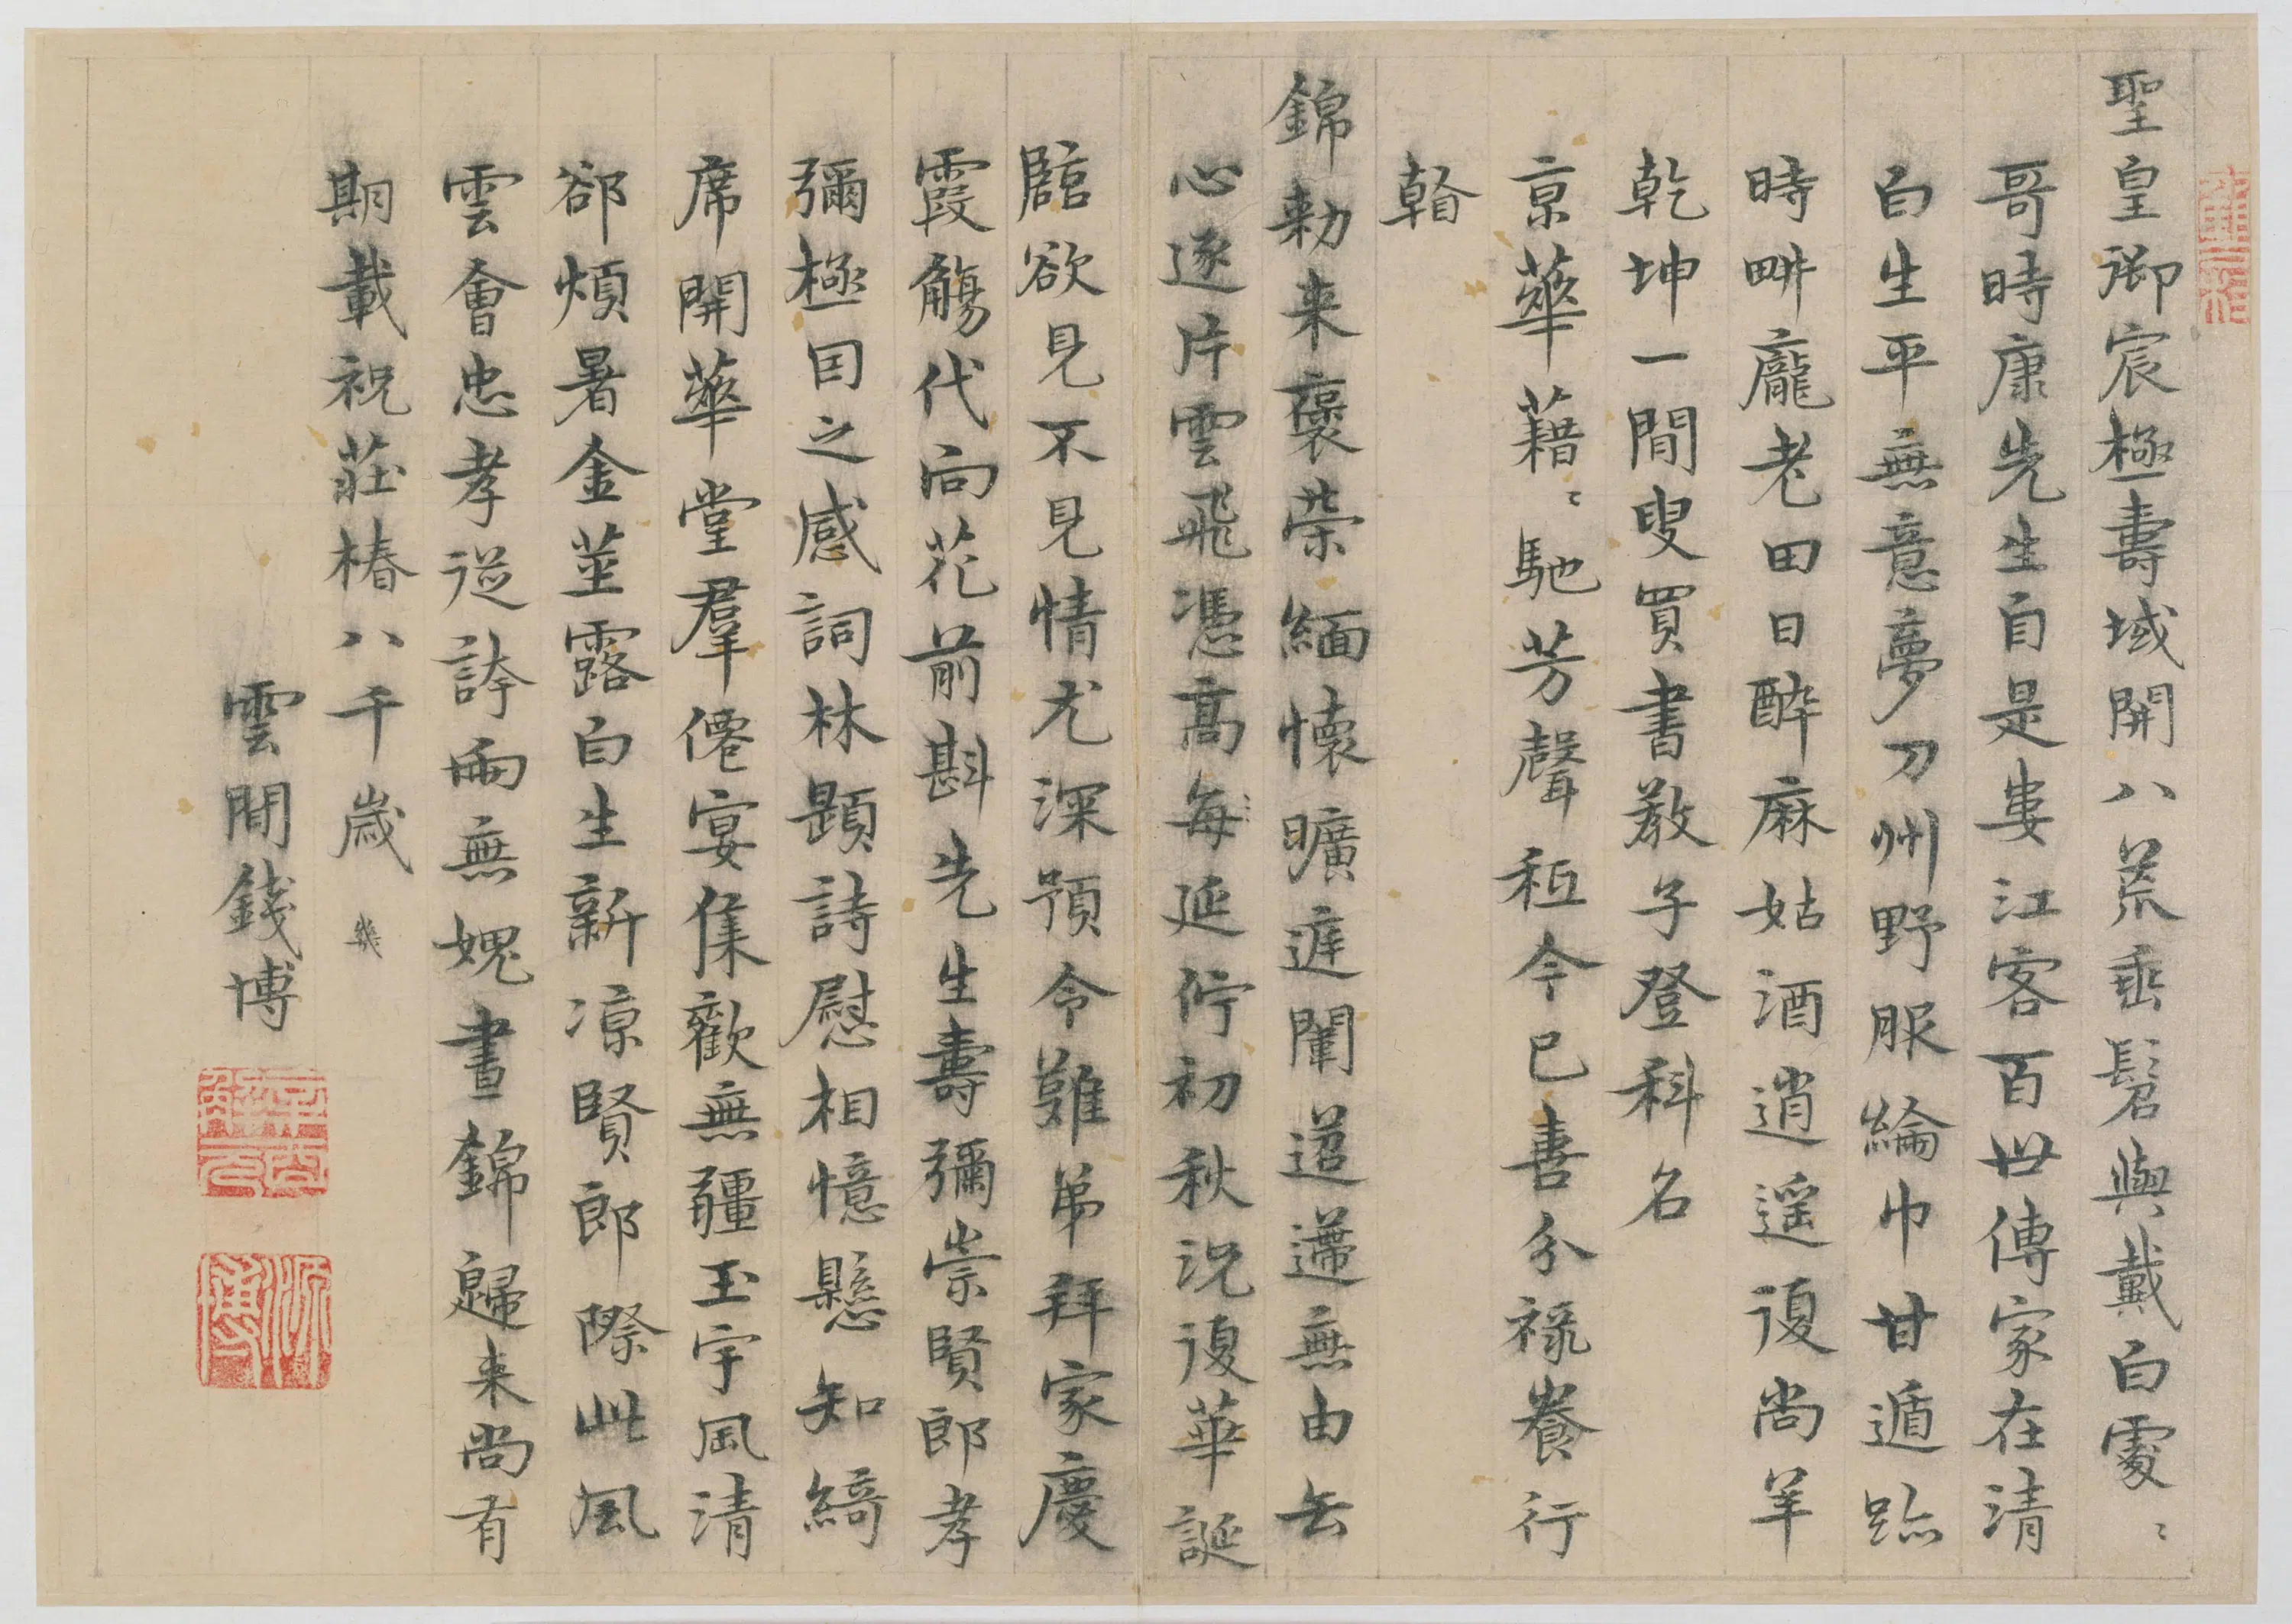 聖皇御宸極壽域開八荒垂髫與戴白處〻
哥時康先生自是婁江客百世傳家在清
白生平無意夢刀州野服綸巾甘遁跡
時畊龐老田日醉麻姑酒逍遙復尚羊
乾坤一閒叟買書教子登科名
京華藉〻馳芳聲秪今已喜分祿養行
看
錦勅来褒荣緬懷曠遊闈迢遞無由去
心逐片雲飛憑髙每延佇初秋況復華誕
臨欲見不見情尤深預令難弟拜家慶
霞觴代向花前斟先生壽彌崇賢郎孝
彌極因之感詞林題詩慰相憶懸知綺
席開華堂羣僊宴集歡無疆玉宇風清
郤煩暑金莖露白生新凉賢郎際此風
雲會忠孝從誇兩無媿晝錦歸来尚有
期載祝莊椿八千歳
雲間錢博